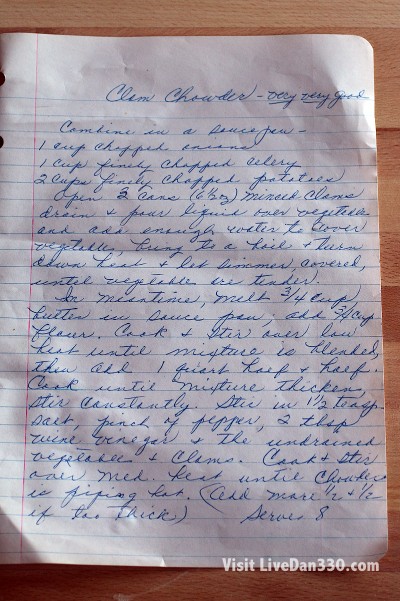 Clam Chowder - very very good
Combine in a saucepan -
1 cup chopped onions
1 cup finely chopped celery
2 cups finely chopped potatoes
Open 2 cans (6½oz) minced clams
drain & pour liquid over vegetables
and add enough water to cover
vegetables, bring to a boil & turn
down heat & let simmer, covered,
until vegetable are tender.
In meantime, melt 3/4 cup
butter in sauce pan, add 3/4 cup
flour. Cook & stir over low
heat until mixture is blended,
then add 1 quart half & half.
Cook until mixture thickens,
stir constantly. Stir in 1½ teasp.
salt, pinch of pepper, 2 tbsp
wine vinegar & the undrained
vegetables & clams. Cook & stir
over med. heat until chowder
is piping hot. (add more ½ & ½
if too thick) Serves 8
Visit LiveDan330.com